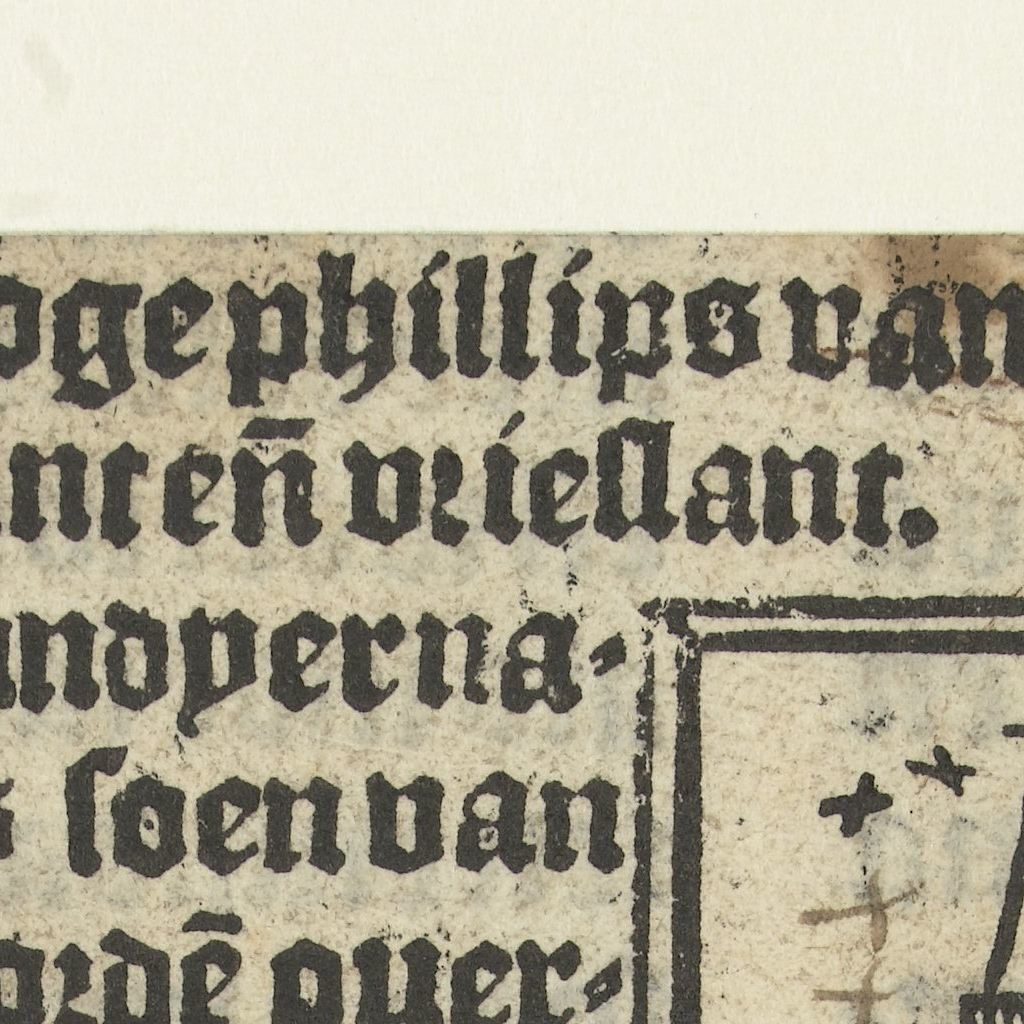 oge phillips van
nten̄ vrieslant.
ndyerna-
s soen van
ordē ouer-